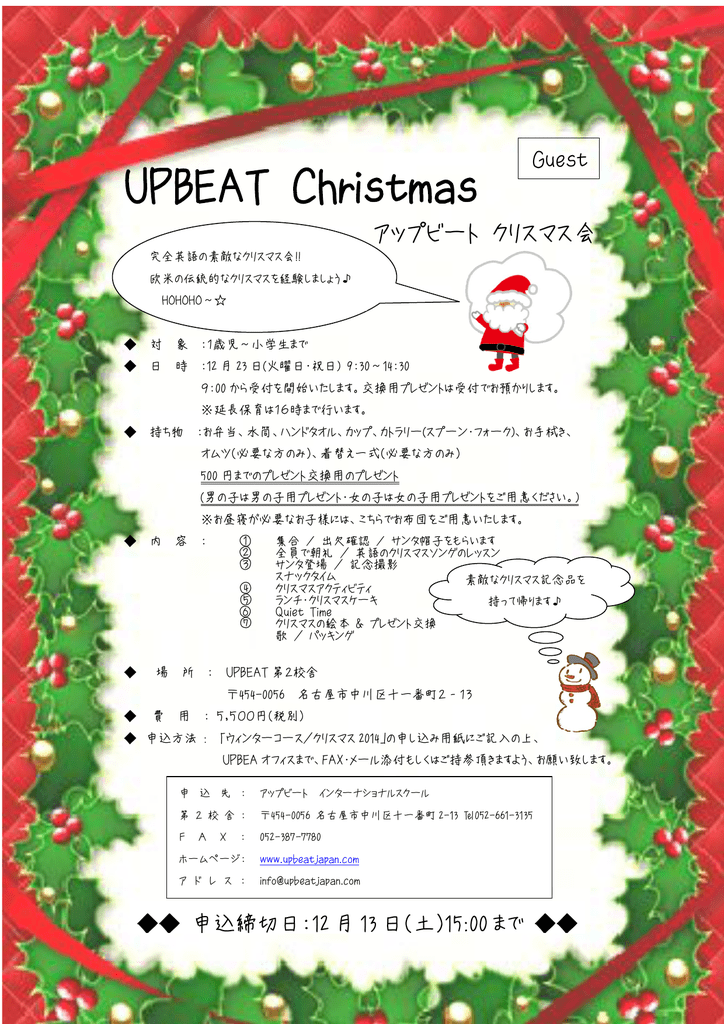 Guest
UPBEAT Christmas
アップビート クリスマス会
完全英語の素敵なクリスマス会!!
欧米の伝統的なクリスマスを経験しましょう♪
HOHOHO～☆
◆ 対 象 :1歳児～小学生まで
◆ 日 時 :12月23日(火曜日・祝日) 9:30～14:30
9:00から受付を開始いたします。交換用プレゼントは受付でお預かりします。
※延長保育は16時まで行います。
◆ 持ち物 :お弁当、水筒、ハンドタオル、カップ、カトラリー(スプーン・フォーク)、お手拭き、
オムツ(必要な方のみ)、着替え一式(必要な方のみ)
500円までのプレゼント交換用のプレゼント
(男の子は男の子用プレゼント・女の子は女の子用プレゼントをご用意ください。)
※お昼寝が必要なお子様には、こちらでお布団をご用意いたします。
◆ 内 容 : ① 集合 / 出欠確認 / サンタ帽子をもらいます
② 全員で朝礼 / 英語のクリスマスソングのレッスン
③ サンタ登場 / 記念撮影
スナックタイム
④ クリスマスアクティビティ
⑤ ランチ・クリスマスケーキ
⑥ Quiet Time
⑦ クリスマスの絵本 & プレゼント交換
歌 / パッキング
素敵なクリスマス記念品を
持って帰ります♪
◆ 場 所 : UPBEAT第2校舎
〒454-0056 名古屋市中川区十一番町2-13
◆ 費 用 : 5,500円(税別)
◆ 申込方法 : 「ウィンターコース/クリスマス2014」の申し込み用紙にご記入の上、
UPBEAオフィスまで、FAX・メール添付もしくはご持参頂きますよう、お願い致します。
申 込 先 : アップビート インターナショナルスクール
第 2 校 舎 : 〒454-0056 名古屋市中川区十一番町2-13 Tel052-661-3135
F A X : 052-387-7780
ホームページ: www.upbeatjapan.com
ア ド レ ス : info@upbeatjapan.com
◆◆ 申込締切日:12月13日(土)15:00まで ◆◆